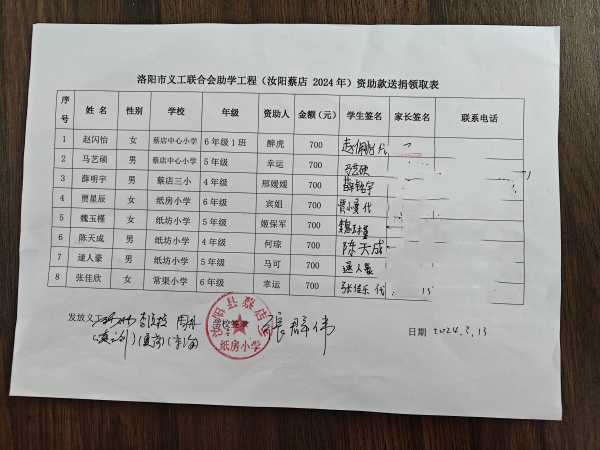 洛阳市义工联合会助学工程（汝阳蔡店 2024 年）资助款送捐领取表
序号 姓 名 性别 学校 年级 资助人 金额（元） 学生签名 家长签名 联系电话
1 赵闪怡 女 蔡店中心小学 6 年级 1 班 醉虎 700
2 马艺硕 男 蔡店中心小学 5 年级 幸运 700 马艺硕
3 薛明宇 男 蔡店三小 4 年级 邢媛媛 700 薛明宇
4 贾星辰 女 纸房小学 6 年级 宾姐 700
5 魏玉槿 女 纸坊小学 5 年级 姬保军 700
6 陈天成 男 纸坊小学 4 年级 何琼 700 陈天成
7 逯人豪 男 纸坊小学 5 年级 马可 700 逯人豪
8 张佳欣 女 常渠小学 6 年级 幸运 700 张佳乐 代
发放义工 学校签章
汝阳县蔡店
纸房小学
日期：2024.3.13